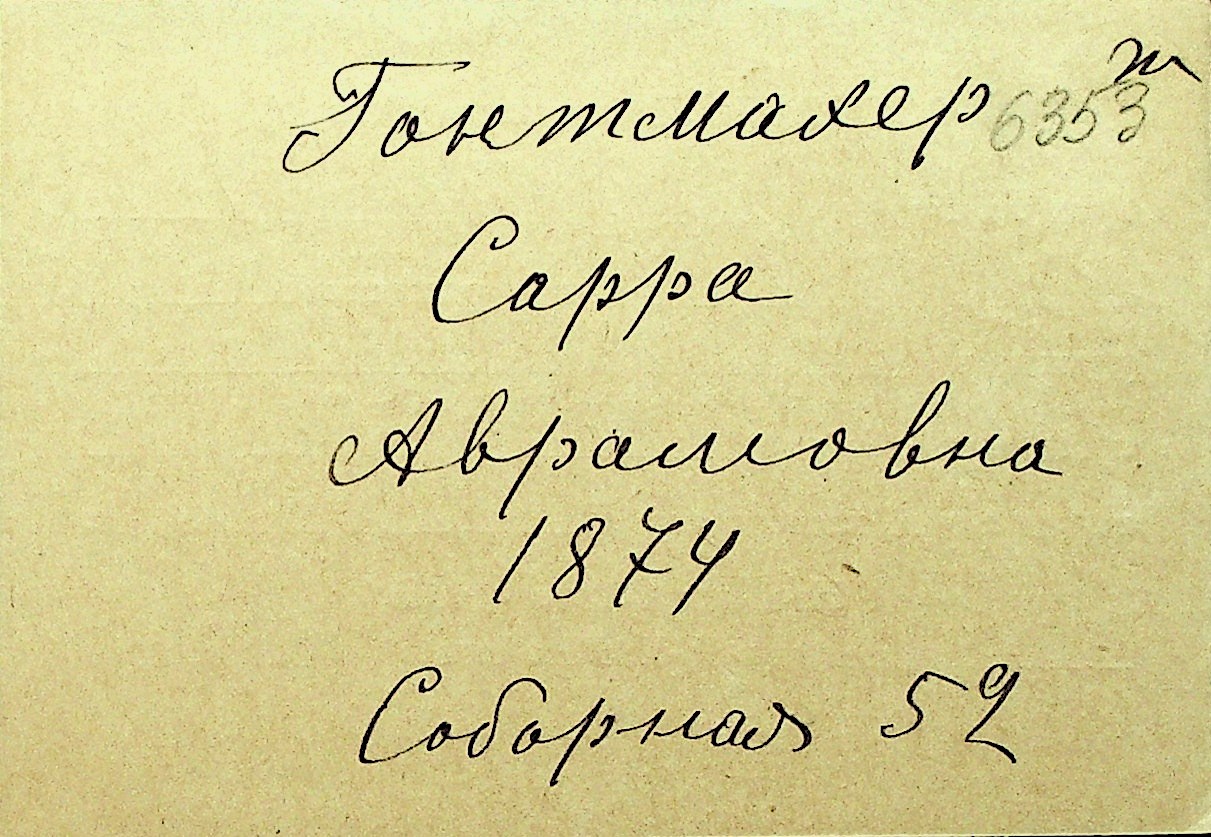 Гонтмахер 6353
Сарра
Аврамовна
1874
Соборная 52